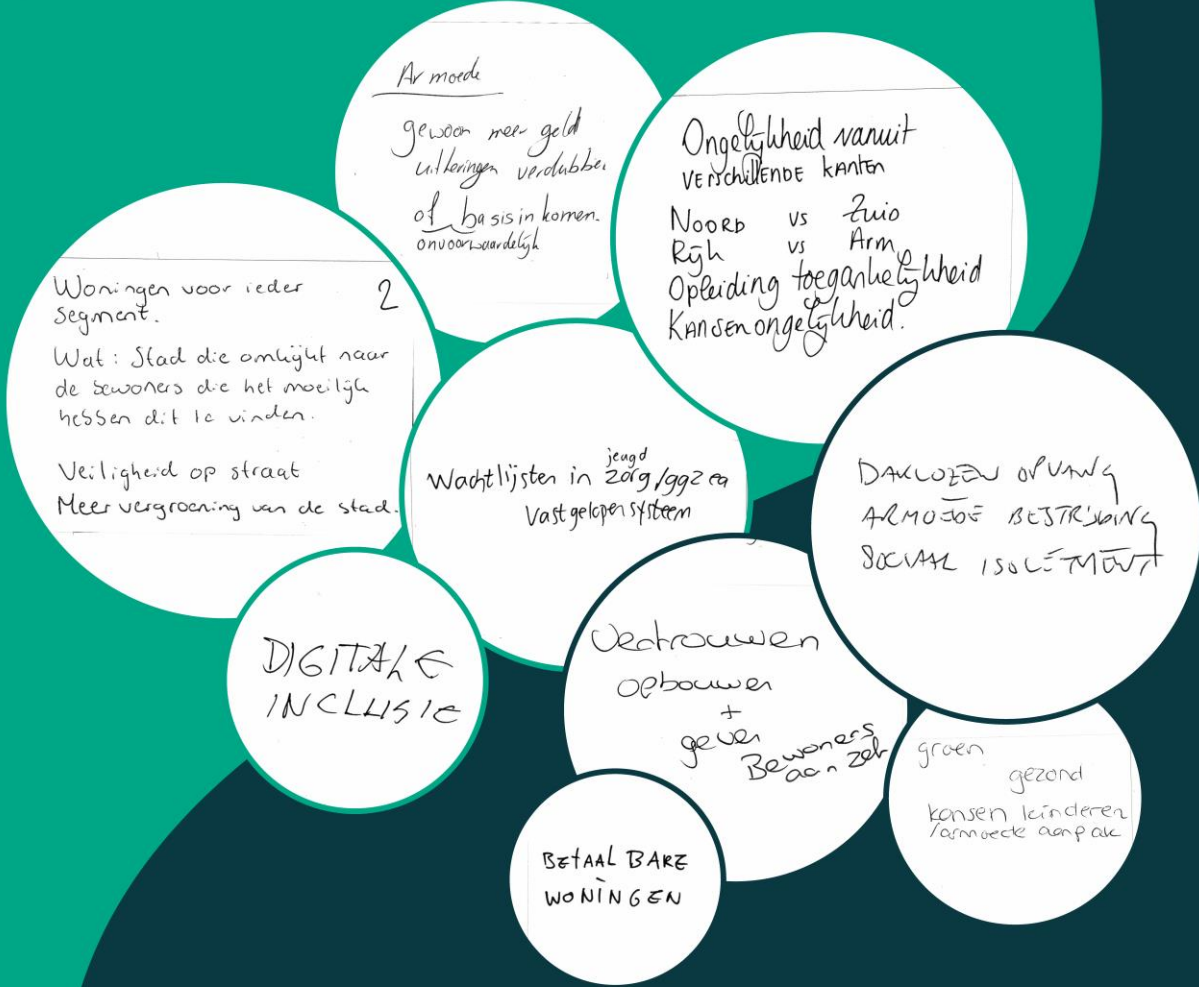 Armoede
gewoon meer geld
uitkeringen verdubbe
of basisinkomen.
onvoorwaardelijk
Ongelijkheid vanuit
verschillende kanten
Noord vs Zuid
Rijk vs Arm
Opleiding toegankelijkheid
Kansenongelijkheid.
Woningen voor ieder 2
Segment.
Wat: Stad die omkijkt naar
de bewoners die het moeilijk
hebben dit te vinden.
Veiligheid op straat
Meer vergroening van de stad.
jeugd
Wachtlijsten in zorg/ggz ea
Vastgelopen systeem
DAKLOZEN OPVANG
ARMOEDE BESTRIJDING
SOCIAAL ISOLEMENT
DIGITALE
INCLUSIE
Vertrouwen
opbouwen
+
geven
Bewoners
aan zet
groen
gezond
kansen kinderen
/armoede aanpak
BETAALBARE
WONINGEN